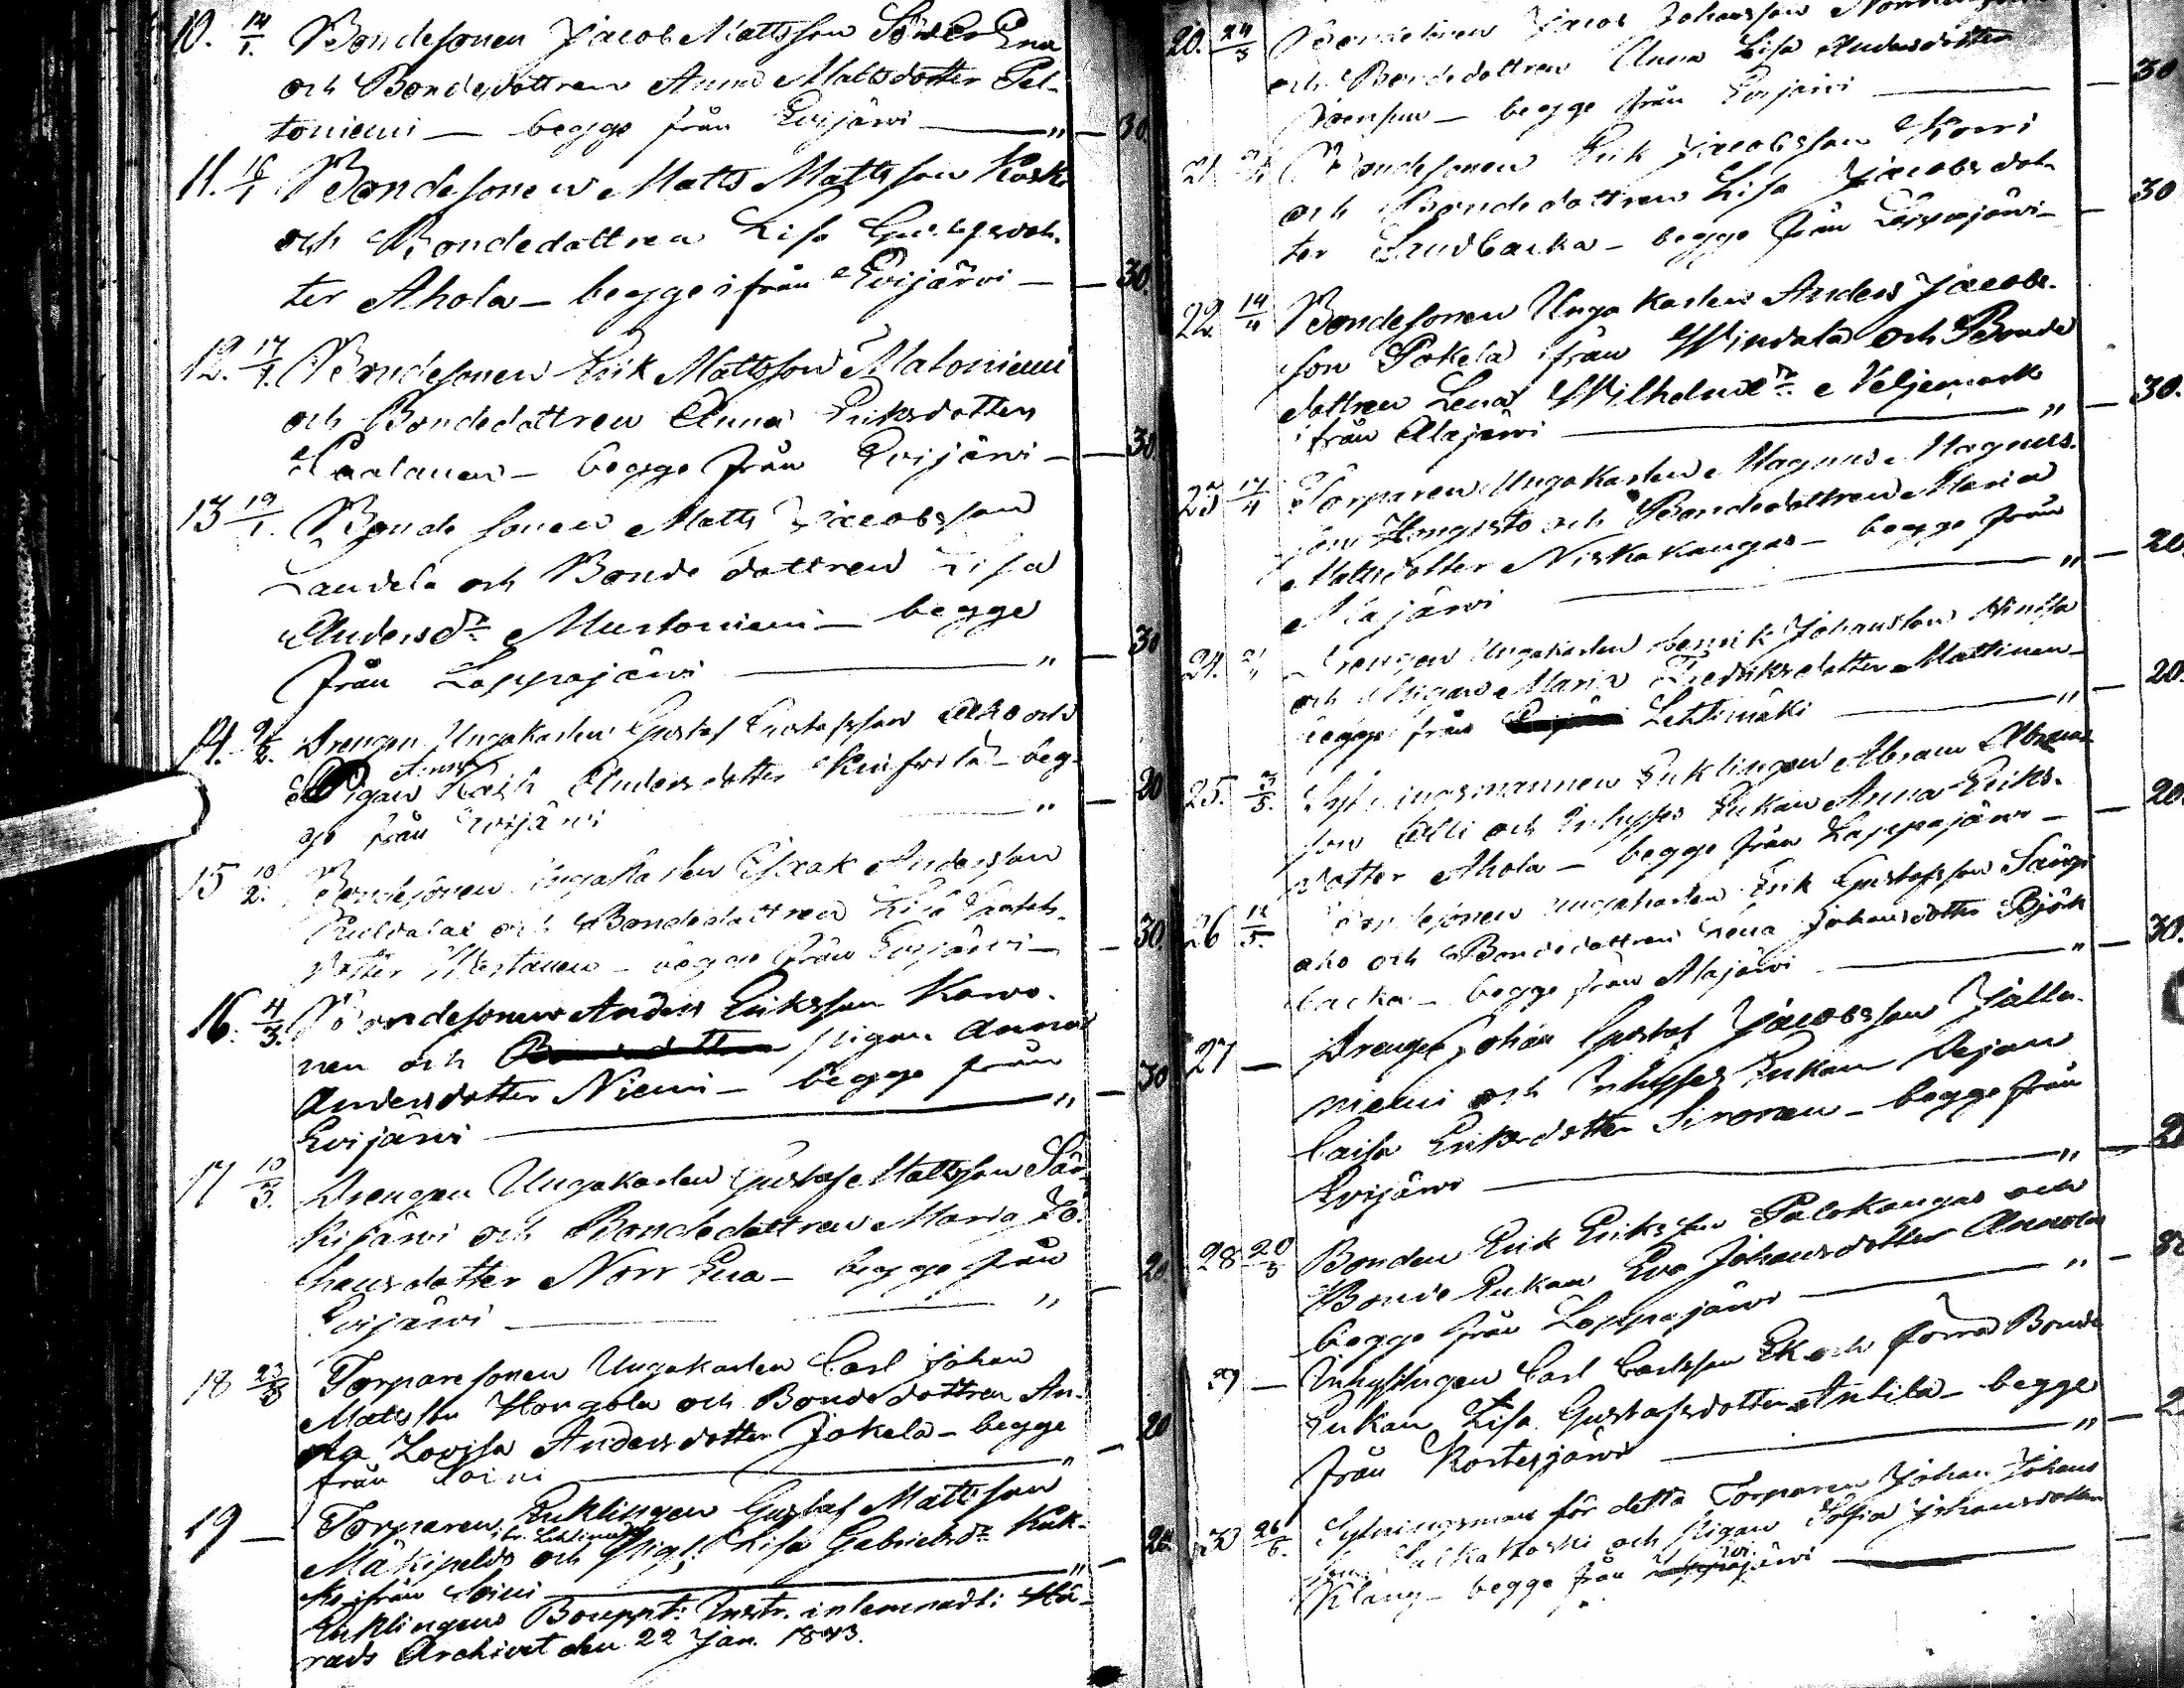 10. 14/1. Bondesonen Jacob Mattsson Söder Ena
och Bondedottren Anna Mattsdotter Pel-
toniemi — begge från Evijärwi — " — 30.
11. 16/1 Bondesonen Matts Mattsson Koski
och Bondedottren Lisa Gustafsdot-
ter Ahola — begge ifrån Evijärvi — — 30.
12. 17/1. Bondesonen Erik Mattsson Matoniemi
och Bondedottren Anna Eriksdotter
begge från Evijärvi — — 30
13 19/1. Bonde sonen Matts Jacobsson
Sandela och Bonde dottren Lisa
Andersdr. Mustoniemi — begge
från Lappajärvi — " — 30
14. Drengen Ungakarlen Gustaf Gustafsson Aho och
Pigan Andersdotter beg-
ge från Evijärvi " — 20
15 10/2. Bondesonen Ungakarlen Isaak Andersson
och Bondedottren Lisa
dotter — begge från Evijärvi — — 30.
16. 4/3. Bondesonen Anders Eriksson Karvo-
nen och Pigan Anna
Andersdotter Niemi — begge från
Evijärvi — " — 30
17 10/3. Drengen Ungakarlen Gustaf Mattsson Sär-
kijärvi och Bondedottren Maria Jo-
hansdotter Norr Ena — begge från
Evijärvi — " — 20
18 23/3 Torparesonen Ungakarlen Carl Johan
Mattsson Hongola och Bondedottren An-
na Lovisa Andersdotter Jokela — begge
från Soini — " — 20
19 — Torparen Enklingen Gustaf Mattsson
Mäkipelto och Pig: Lisa Gabrielsdr. Kuk-
ko ifrån Soini — " — 20
Enklingens Bouppt: Instr. inlemnadt: Hä-
rads Archivet den 22 Jan. 1843.
20. 24/3 Bondesonen Jacob Johansson
och Bondedottren Anna Lisa Andersdotter
begge från Evijärvi — — 30
21 Bondesonen Erik Jacobsson Korri
och Bondedottren Lisa Jacobsdot-
ter Sandbacka — begge från Lappajärvi — — 30
22. 14/4 Bondesonen Ungakarlen Anders Jacobs-
son Pokela ifrån Windala och Bonde
dottren Lena Wilhelmsdr. Veljemark
ifrån Alajärvi — " — 30.
23 17/4 Torparen Ungakarlen Magnus Magnus-
son Hongisto och Bondedottren Maria
Mattsdotter Niskakangas — begge från
Alajärvi — " — 20
24. Drengen Ungakarlen Henrik Johansson
och Pigan Maria Fredriksdotter Mattinen —
begge från Lehtimäki — " — 20.
25. 3/5. Sytningsmannen Enklingen Abram Abrams-
son Alli och Inhyses Enkan Anna Eriks-
dotter Ahola — begge från Lappajärvi — — 20
26 12/5. Bondesonen Ungakarlen Erik Gustafsson Sängi
aho och Bondedottren Lena Johansdotter Björk
backa — begge från Alajärvi — " — 30.
27 — Drengen Johan Gustaf Jacobsson Jälla-
niemi och Inhyses Enkan
Caisa Eriksdotter Sironen — begge från
Evijärvi — " — 20
28 20/5 Bonden Erik Eriksson Palokangas och
Bonde Enkan Eva Johansdotter Annola
begge från Lappajärvi — " —
29 — Inhysingen Carl Carlsson Ek och förra Bonde
Enkan Lisa Gustafsdotter Antila — begge
från Kortesjärvi — " — 2
30 26/5. Sytningsman för detta Torparen Johan Johans
son och Pigan Sofia Johansdotter
Klang — begge från